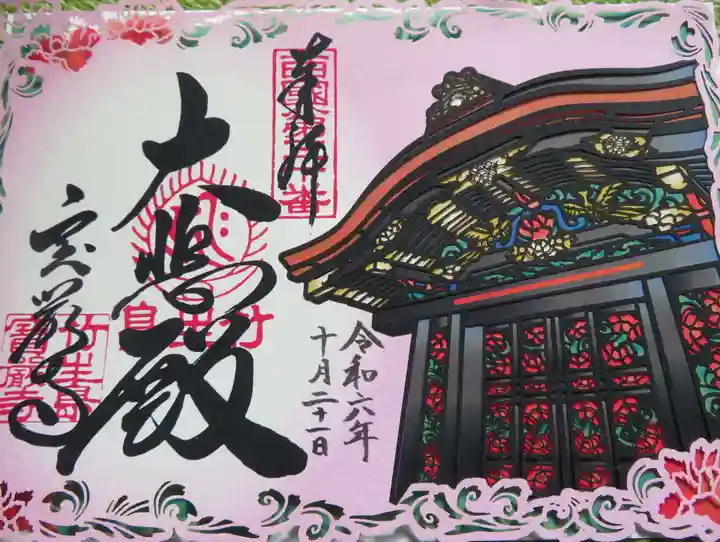 奉拝
令和六年
十月二十一日
大悲殿
宝厳寺
竹生島
寶嚴寺